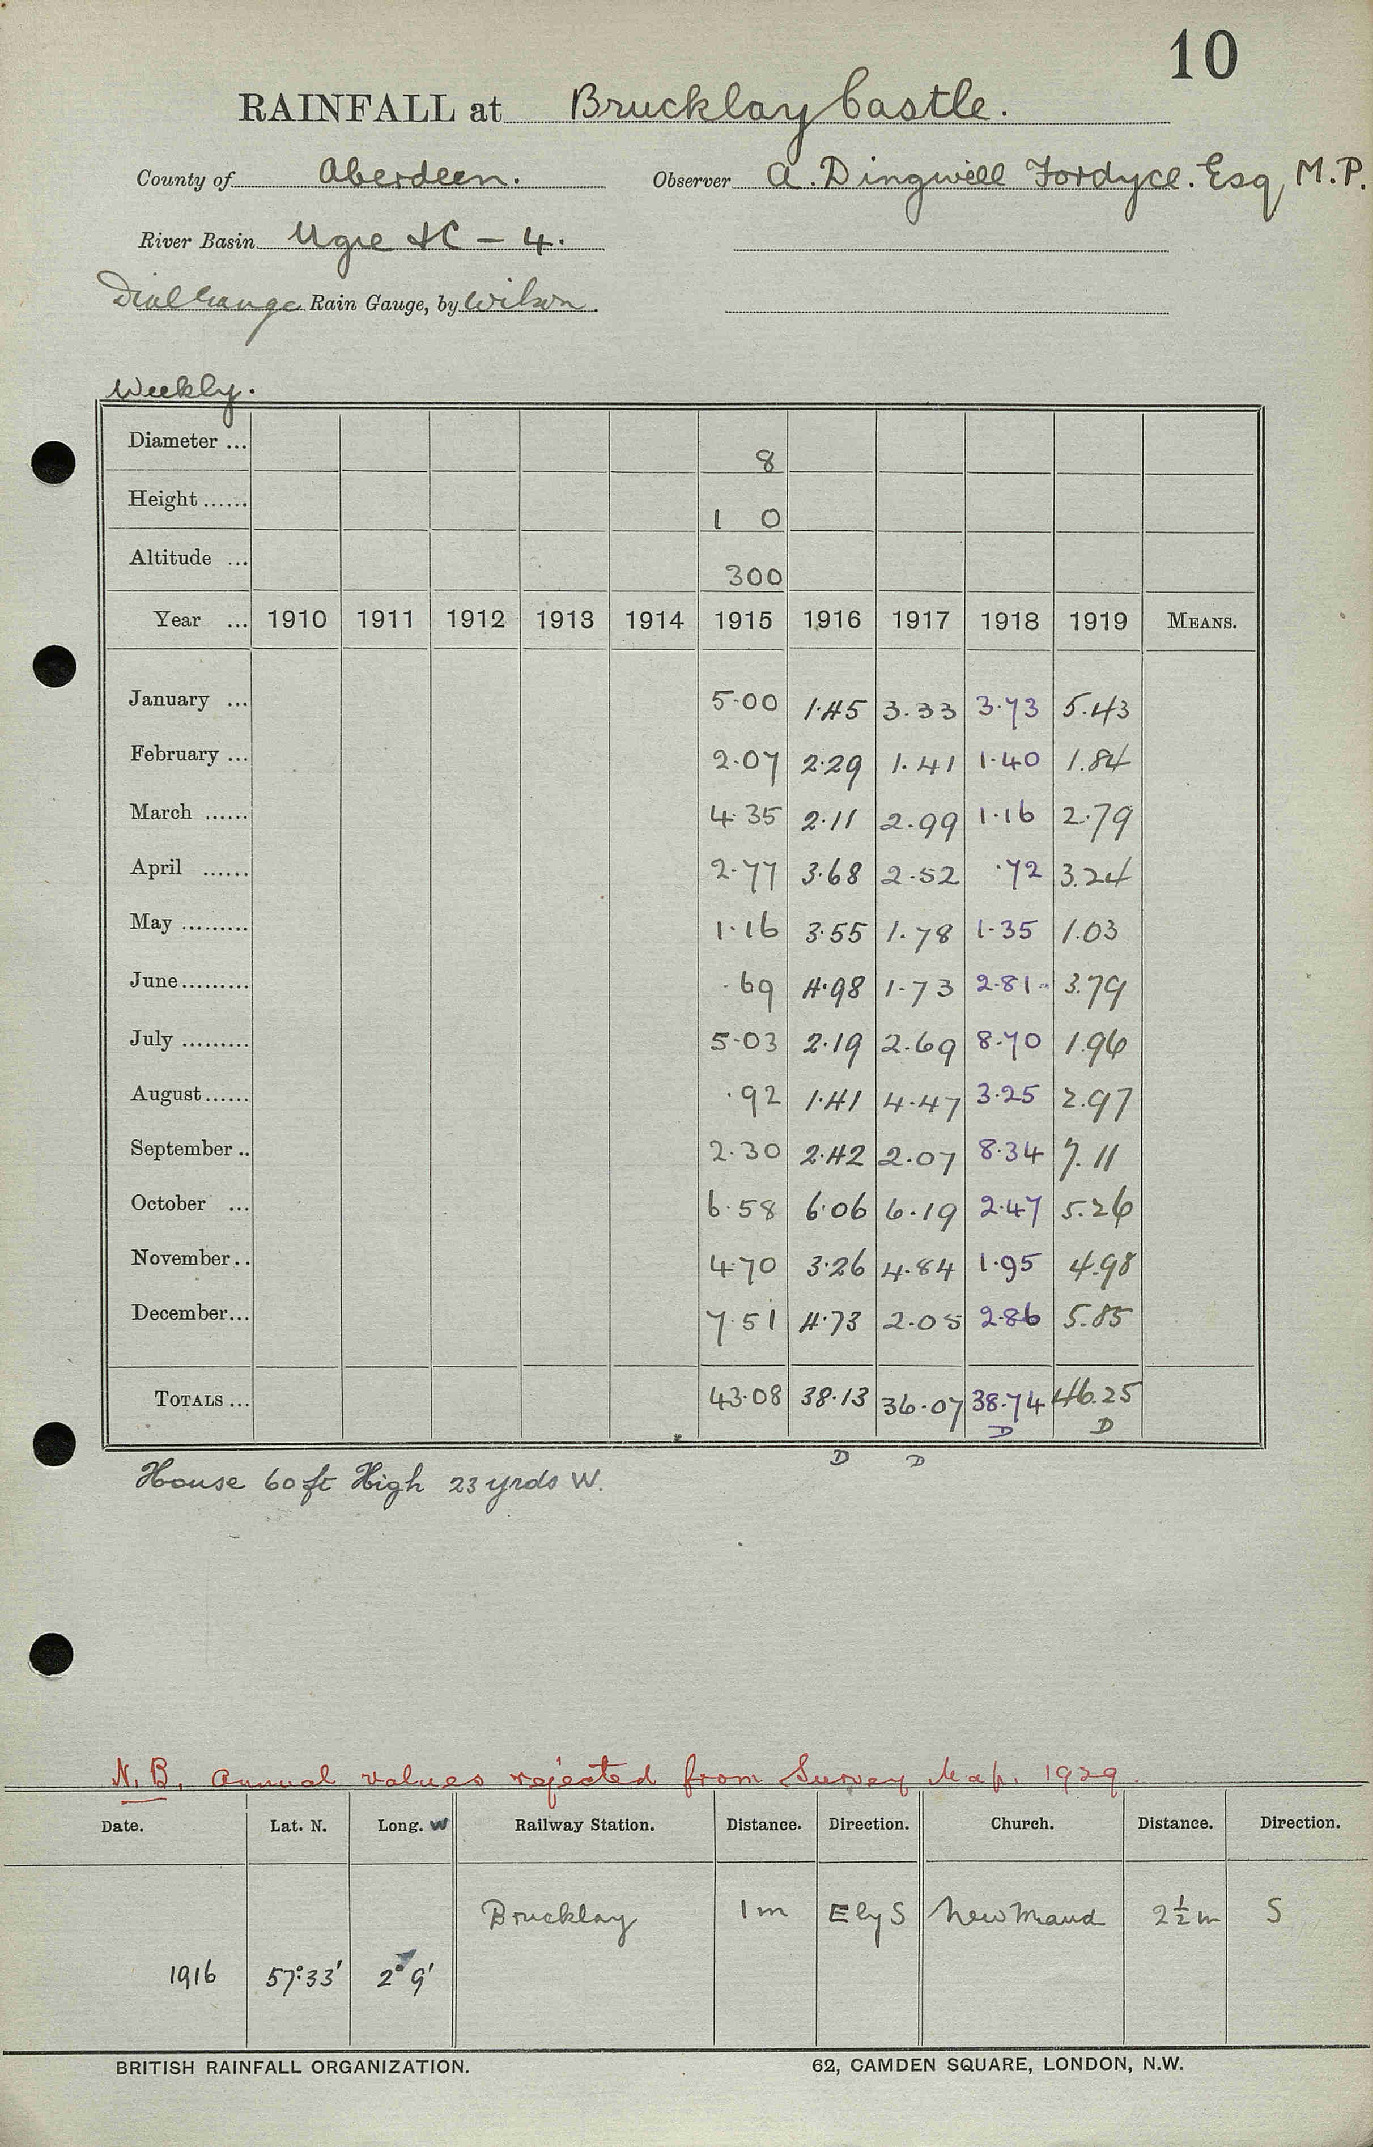 10
RAINFALL at Brucklay Castle.
County of Aberdeen. Observer A. Dingwell Fordyce. Esq M.P.
River Basin Ugie &C - 4.
Dial Gauge Rain Gauge, by Wilson
Weekly.
Diameter ... 8
Height ...... 1 0
Altitude ... 300
Year ... 1910 1911 1912 1913 1914 1915 1916 1917 1918 1919 MEANS.
January ... 5.00 1.45 3.33 3.73 5.43
February ... 2.07 2.29 1.41 1.40 1.84
March ...... 4.35 2.11 2.99 1.16 2.79
April ...... 2.77 3.68 2.52 .72 3.24
May ......... 1.16 3.55 1.78 1.35 1.03
June......... .69 4.98 1.73 2.81 3.79
July ......... 5.03 2.19 2.69 8.70 1.96
August...... .92 1.41 4.47 3.25 2.97
September .. 2.30 2.42 2.07 8.34 7.11
October ... 6.58 6.06 6.19 2.47 5.26
November .. 4.70 3.26 4.84 1.95 4.98
December... 7.51 4.73 2.05 2.86 5.85
TOTALS ... 43.08 38.13 36.07 38.74 46.25
D D
D D
House 60 ft High 23 yrds W.
N.B. Annual values rejected from Survey Map. 1929.
Date. Lat. N. Long. W Railway Station. Distance. Direction. Church. Distance. Direction.
Brucklay 1 m E by S New Maud 2½ m S
1916 57°33' 2°9'
BRITISH RAINFALL ORGANIZATION. 62, CAMDEN SQUARE, LONDON, N.W.